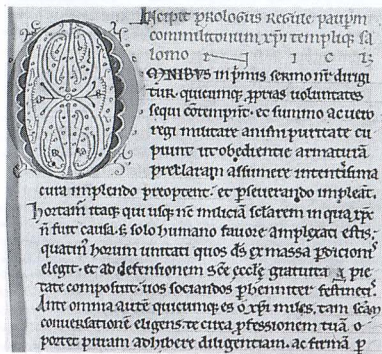 Incipit prologus Regule paupm
commilitonum xpi templiq; sa
lomo n i c i s
OMNIBVS in pmis sermo nr dirigi
tur. quicumq; pprias uoluntates
sequi contempnt. et summo ac uero
regi militare animi puritate cu
piunt ut obedientie armaturā
preclaram assumere intentissima
cura implendo preoptent. et pseuerando impleāt.
hortam itaq; uos qui usq; nc miliciā sclarem in qua xpc
n fuit causa. s; solo humano fauore amplexati estis;
quatin horum unitati quos ds ex massa pdicioni
elegit. et ad defensionem sce eccle gratuita pie
tate composuit. uos sociandos phenniter festinetis.
Ante omnia autē quicumq; es o xpi miles. tam scām
conuersationē eligens. te circa pfessionem tuā o
portet puram adhibere diligentiam. ac firmā p